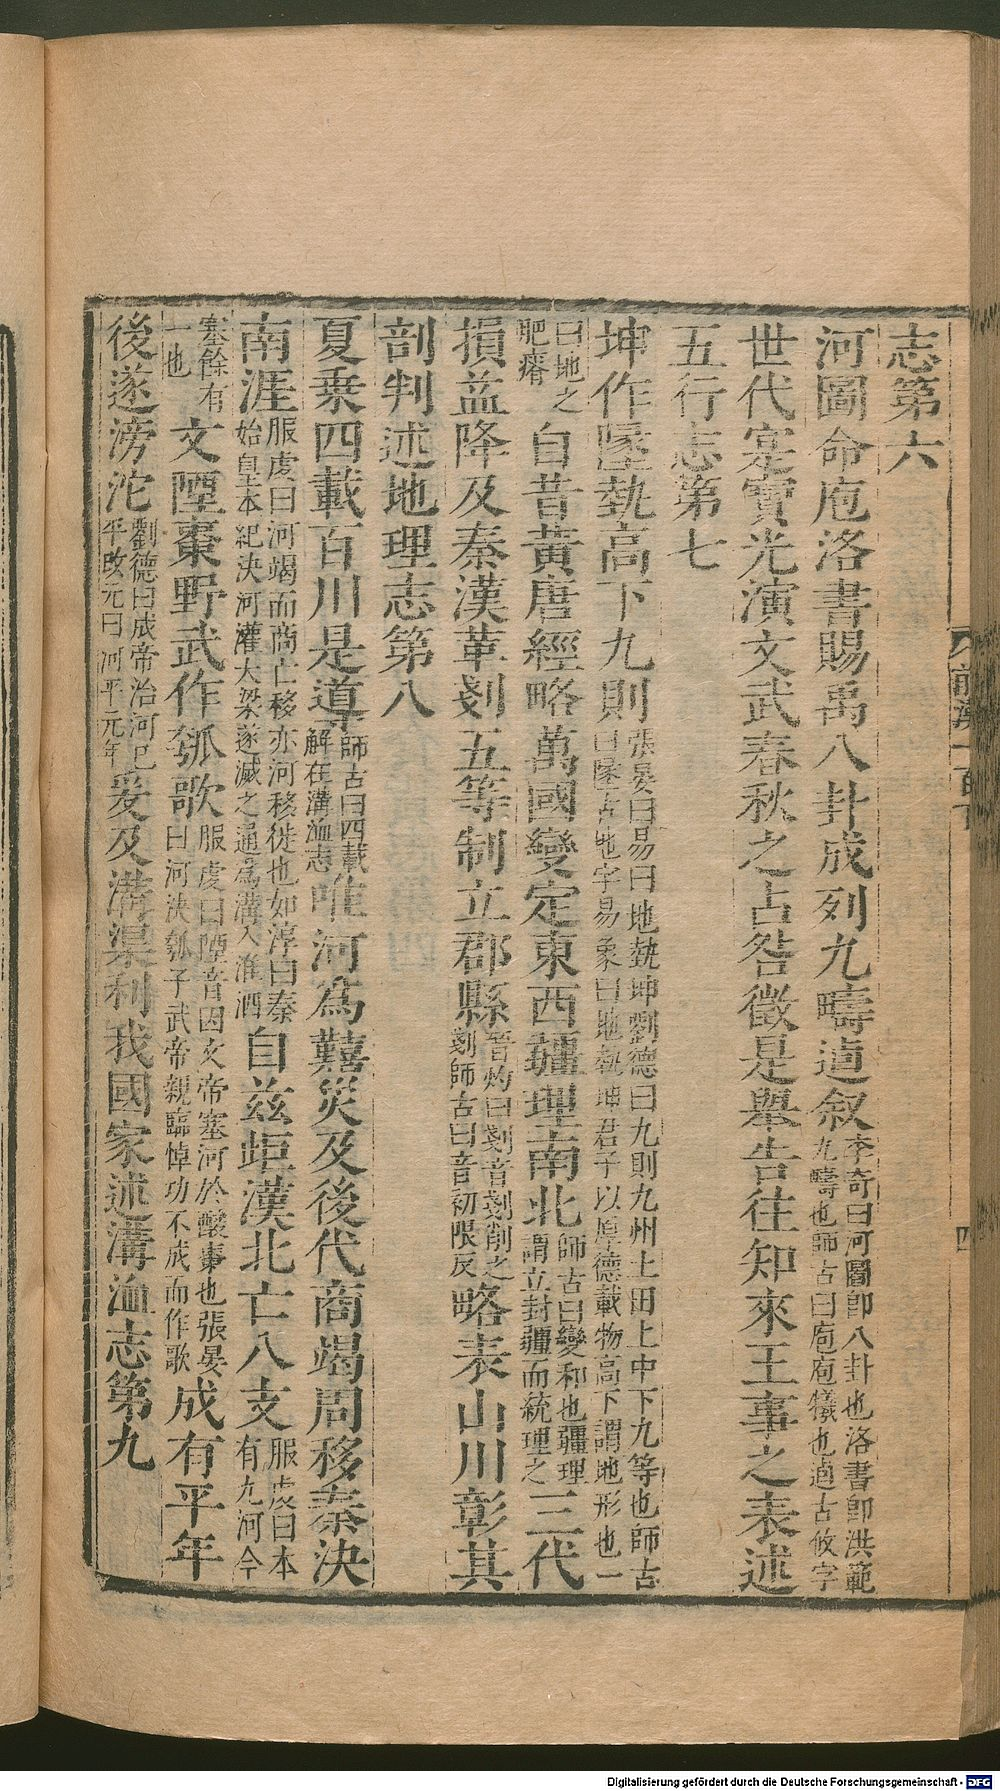 志第六
河圖命庖洛書賜禹八卦成列九疇逌叙李奇曰河圖即八卦也洛書即洪範九疇也師古曰庖庖犧也逌古攸字
世代寔寶光演文武春秋之占咎徵是舉告往知來王事之表述
五行志第七
坤作墬埶高下九則張晏曰易曰地埶坤劉德曰九則九州土田上中下九等也師古曰墬古地字易象曰地埶坤君子以厚德載物高下謂地形也一
曰地之肥瘠自昔黃唐經略萬國燮定東西疆理南北師古曰燮和也疆理謂立封疆而統理之三代
損益降及秦漢革剗五等制立郡縣晉灼曰剗音剗削之剗師古曰音初限反略表山川彰其
剖判述地理志第八
夏乗四載百川是道師古曰四載解在溝洫志唯河爲囏災及後代商竭周移秦決
南涯服虔曰河竭而商亡移亦河移徙也如淳曰秦始皇本紀決河灌大梁遂滅之通爲溝入淮泗自兹歫漢北亡八支服虔曰本有九河今
塞餘有一也文陻棗野武作瓠歌服虔曰陻音因文帝塞河於酸棗也張晏曰河決瓠子武帝親臨悼功不成而作歌成有平年
後遂滂沱劉德曰成帝治河已平改元曰河平元年爰及溝渠利我國家述溝洫志第九
前漢一百下
四
Digitalisierung gefördert durch die Deutsche Forschungsgemeinschaft - DFG